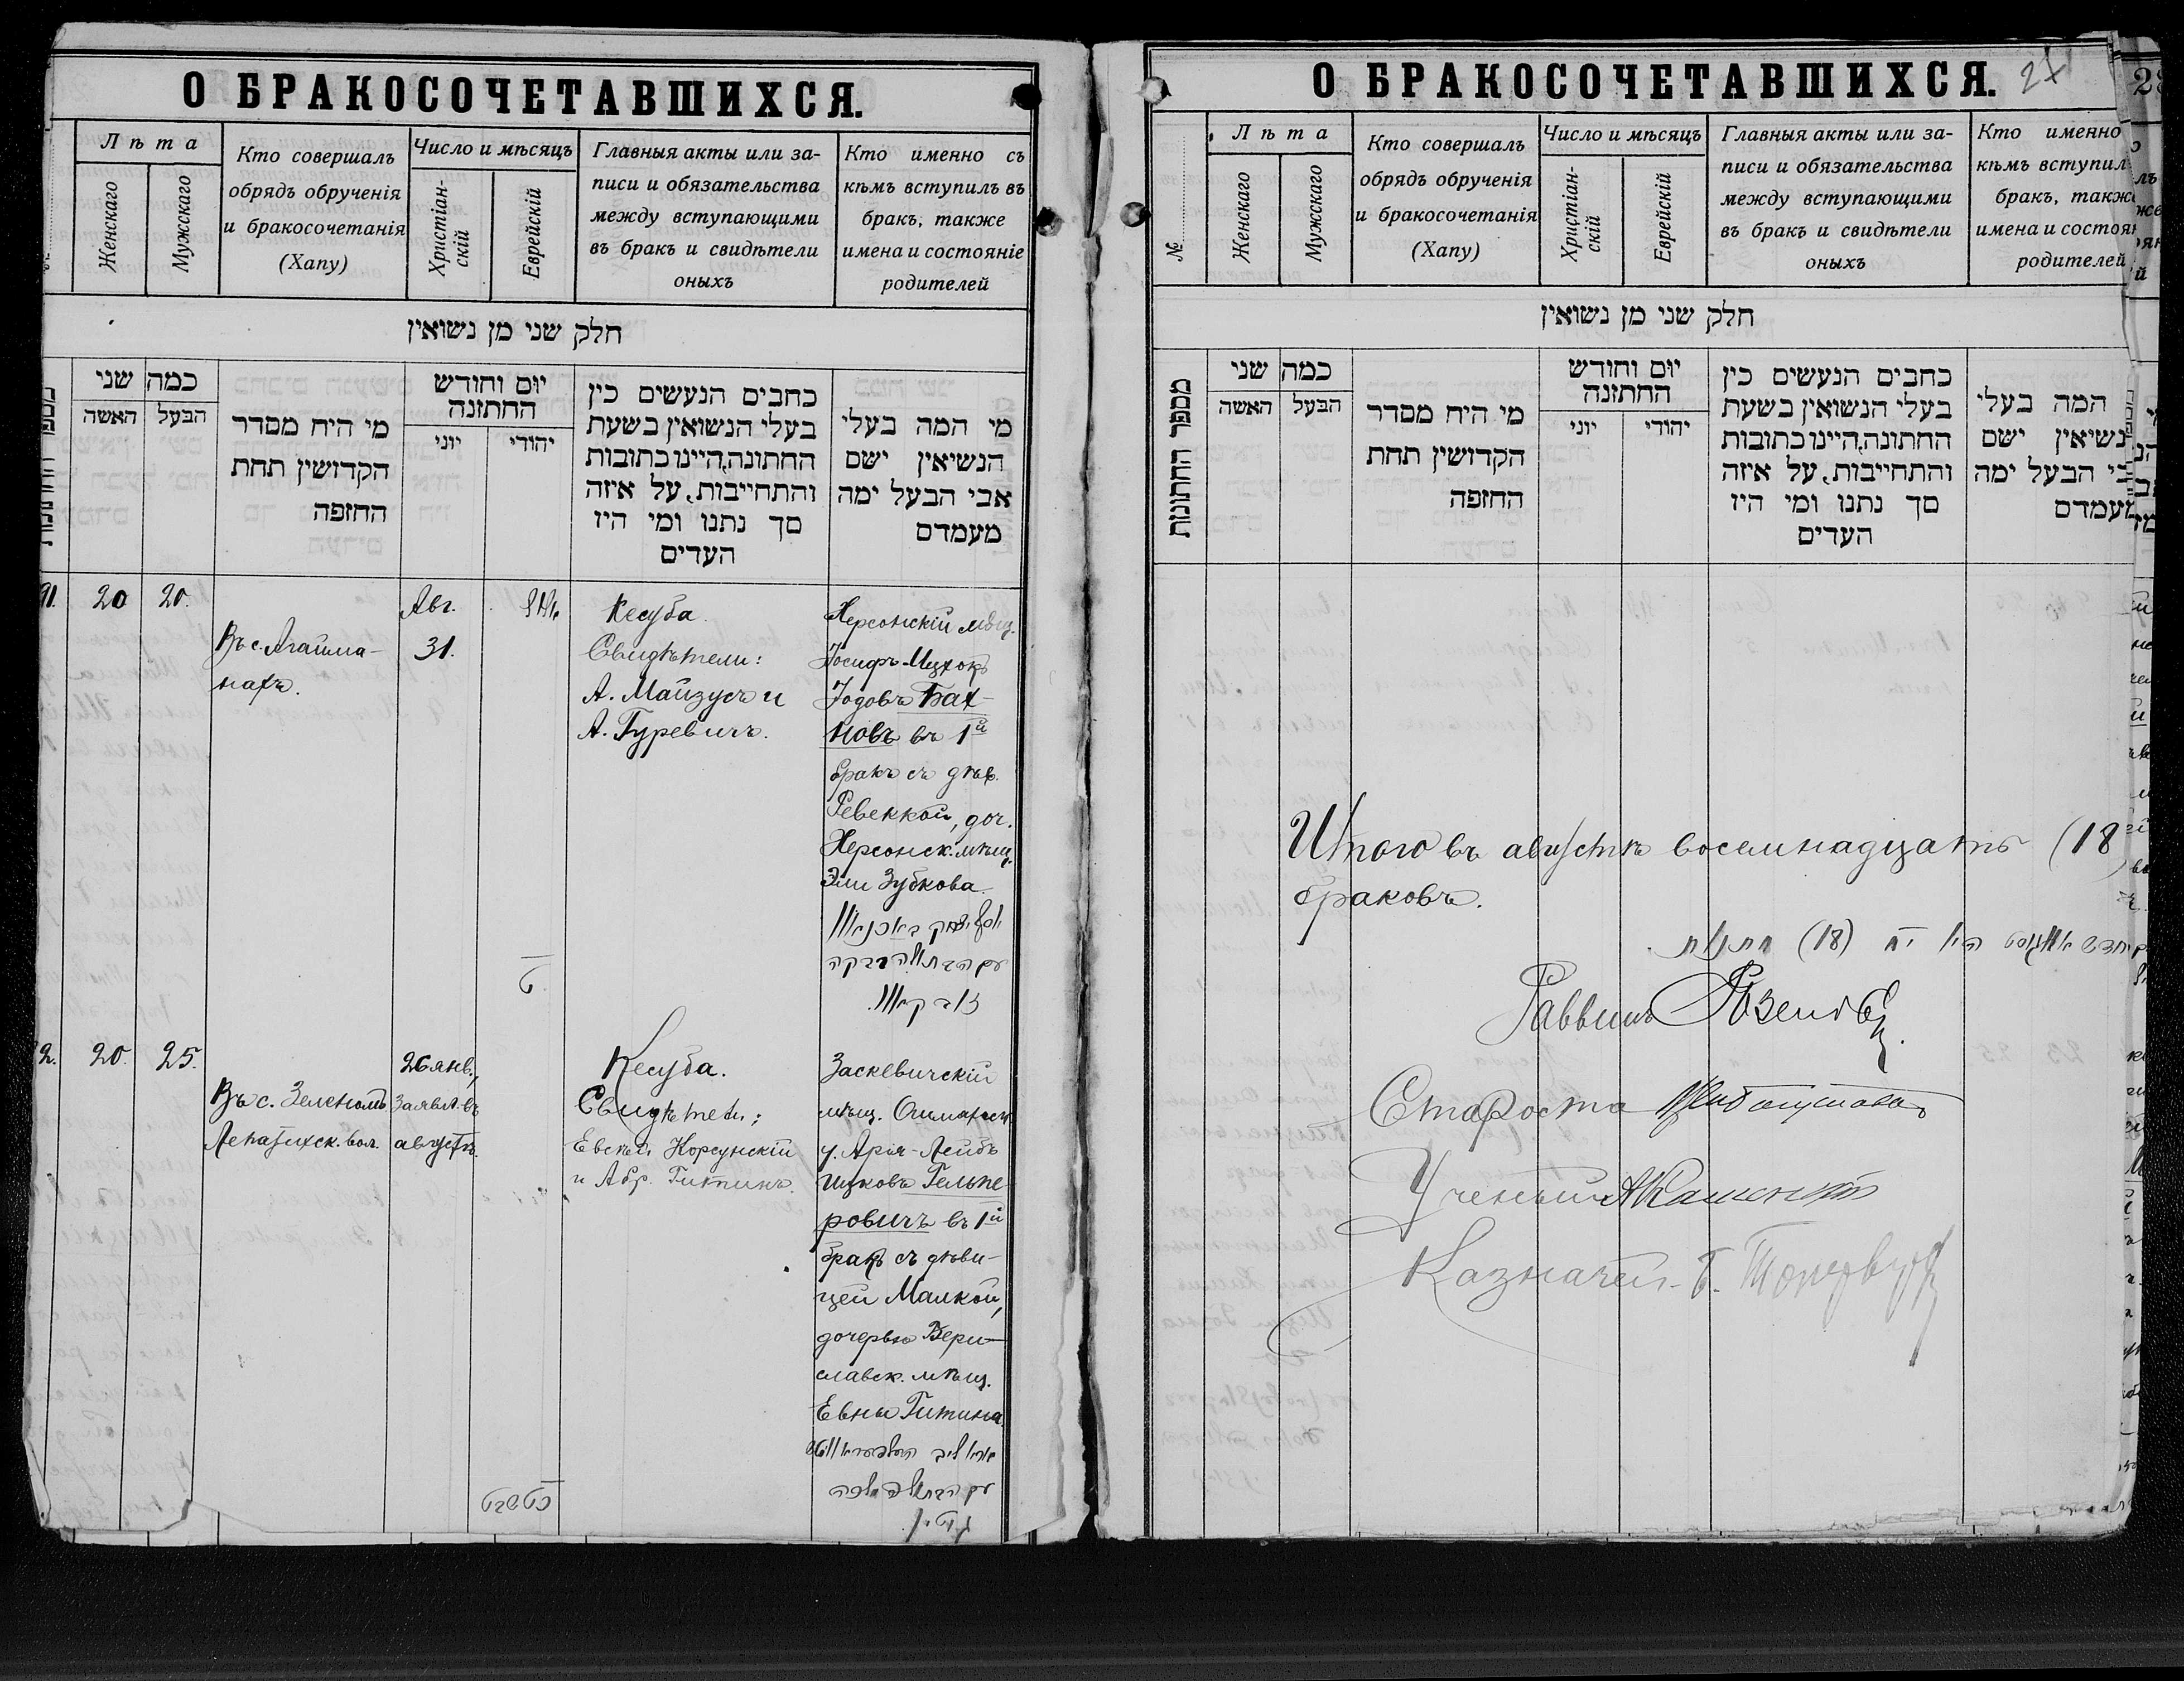 О БРАКОСОЧЕТАВШИХСЯ.
Лѣта
Женскаго
Мужскаго
Кто совершалъ
обрядъ обрученія
и бракосочетанія
(Хапу)
Число и мѣсяцъ
Христіан-
скій
Еврейскій
Главныя акты или за-
писи и обязательства
между вступающими
въ бракъ и свидѣтели
оныхъ
Кто именно съ
кѣмъ вступилъ въ
бракъ, также
имена и состояніе
родителей
חלק שני מן נשואין
כמה שני
האשה
הבעל
מי היח מסדר
הקדושין תחת
החזפה
יום וחודש
החתזנה
יוני
יהודי
כחבים הנעשים כין
בעלי הנשואין בשעת
החתונה,היינו כתובות
והתחייבות, על איזה
סך נתנו ומי היז
העדים
מי המה בעלי
הנשיאין ישם
אבי הבעל ימה
מעמדם
91.
20
20.
Въ с. Агайма-
нахъ.
Авг.
31.
Кесуба.
Свидѣтели:
А. Майзусъ и
А. Гуревичъ.
Херсонскій мѣщ.
Іосифъ-Ицхокъ
Іодовъ Бах-
новъ въ 1й
бракъ съ дѣв.
Ревеккой, доч.
Херсонск. мѣщ.
Эли Зубкова.
2.
20.
25.
Въ с. Зеленомъ
Лепатихск. вол.
26 янв.,
заявл. въ
августѣ.
Кесуба.
Свидѣтели:
Корсунскій
и Абр. Гитинъ.
Заскевичскій
мѣщ. Ошмянск.
у. Арія-Лейбъ
Ицковъ Гельпе-
ровичъ въ 1й
бракъ съ дѣви-
цей Малкой,
дочерью Бери-
славск. мѣщ.
Евны Гитина.
О БРАКОСОЧЕТАВШИХСЯ.
27
№
Лѣта
Женскаго
Мужскаго
Кто совершалъ
обрядъ обрученія
и бракосочетанія
(Хапу)
Число и мѣсяцъ
Христіан-
скій
Еврейскій
Главныя акты или за-
писи и обязательства
между вступающими
въ бракъ и свидѣтели
оныхъ
Кто именно
кѣмъ вступил
бракъ, также
имена и состоян
родителей
חלק שני מן נשואין
מספר החתונות
כמה שני
האשה
הבעל
מי היח מסדר
הקדושין תחת
החזפה
יום וחודש
החתזנה
יוני
יהודי
כחבים הנעשים כין
בעלי הנשואין בשעת
החתונה,היינו כתובות
והתחייבות, על איזה
סך נתנו ומי היז
העדים
המה בעלי
נשיאין ישם
בי הבעל ימה
מעמדם
Итого въ августѣ восемнадцать (18)
браковъ.
Раввинъ
Староста
Ученый
Казначей